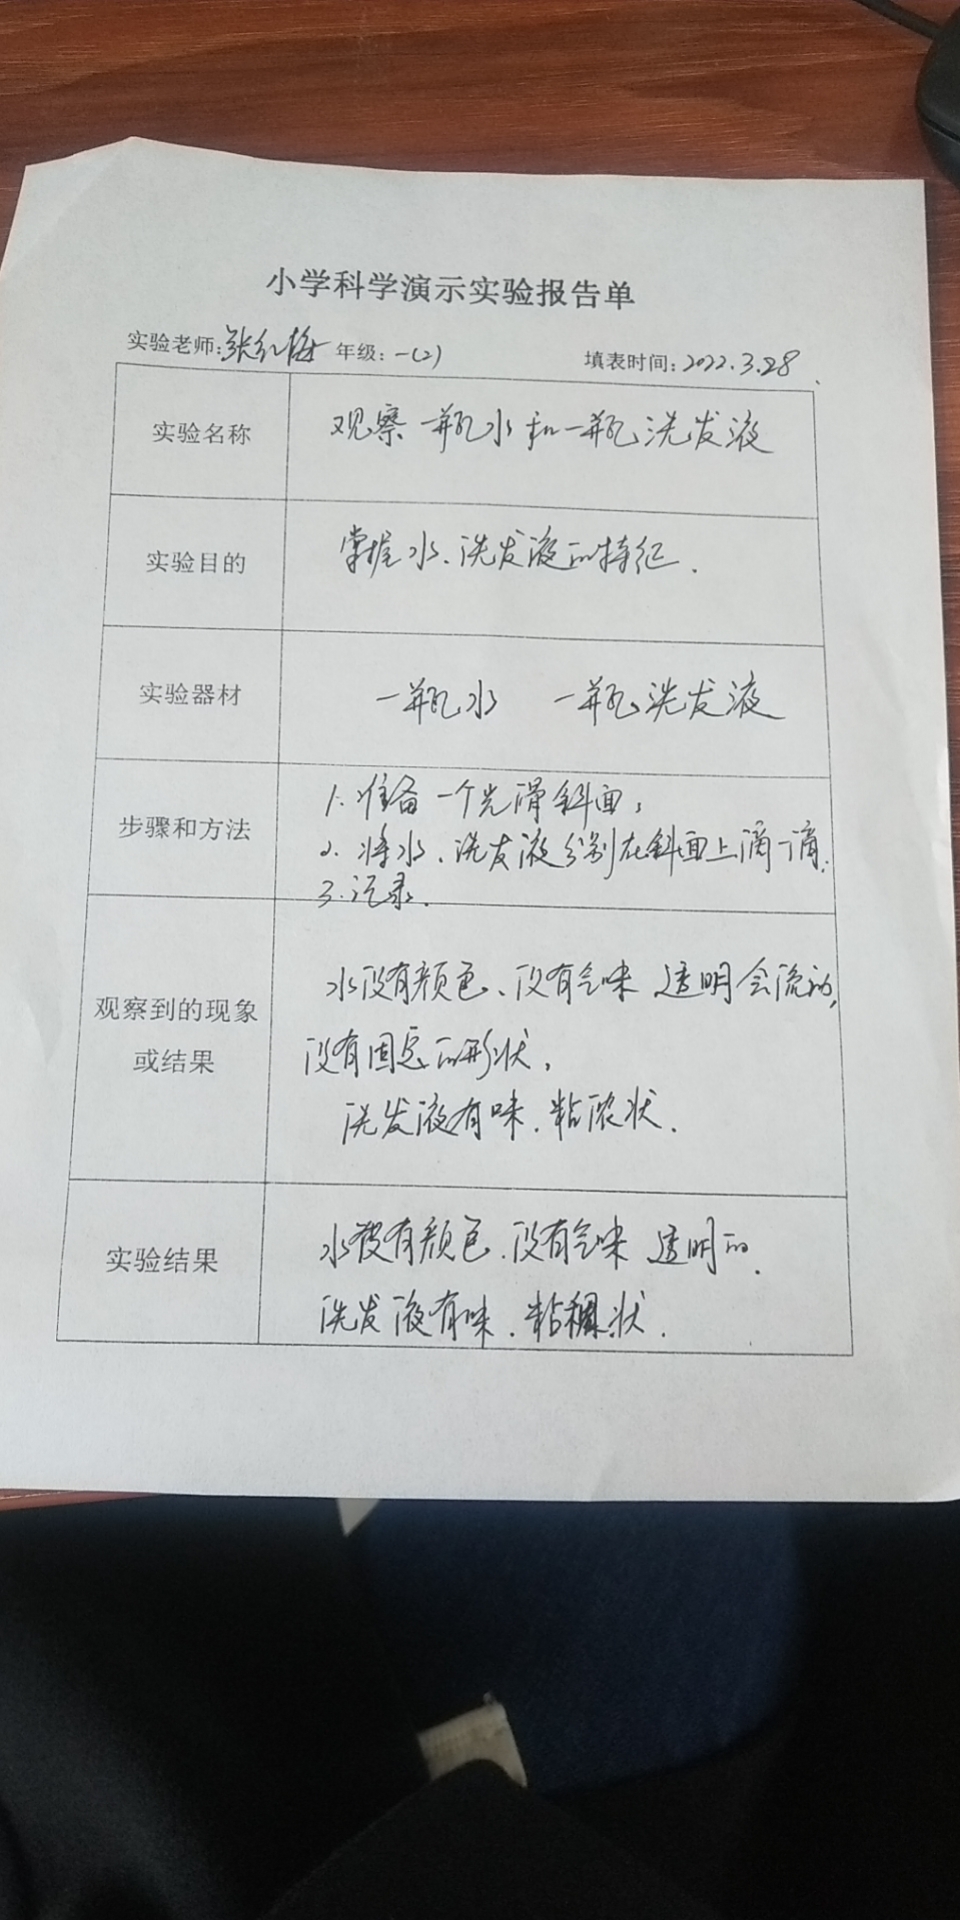 小学科学演示实验报告单
实验老师:张红梅 年级:一(2) 填表时间:2022.3.28
实验名称 观察一瓶水和一瓶洗发液
实验目的 掌握水、洗发液的特征.
实验器材 一瓶水 一瓶洗发液
步骤和方法
1.准备一个光滑斜面;
2.将水、洗发液分别在斜面上滴一滴.
3.记录.
观察到的现象
或结果
水没有颜色、没有气味 透明会流动,
没有固定的形状,
洗发液有味.粘浓状.
实验结果
水没有颜色.没有气味 透明的.
洗发液有味.粘稠状.